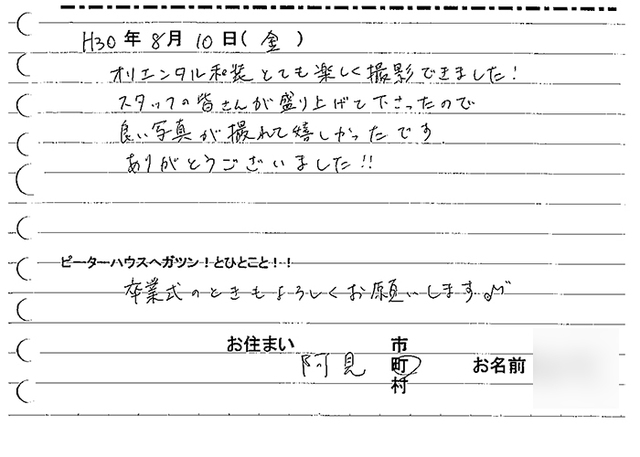 H30年8月10日(金)
オリエンタル和装とても楽しく撮影できました!
スタッフの皆さんが盛り上げて下さったので
良い写真が撮れて嬉しかったです
ありがとうございました!!
ピーターハウスへガツン!とひとこと!!
卒業式のときもよろしくお願いします♪
お住まい 阿見 市 町 村 お名前